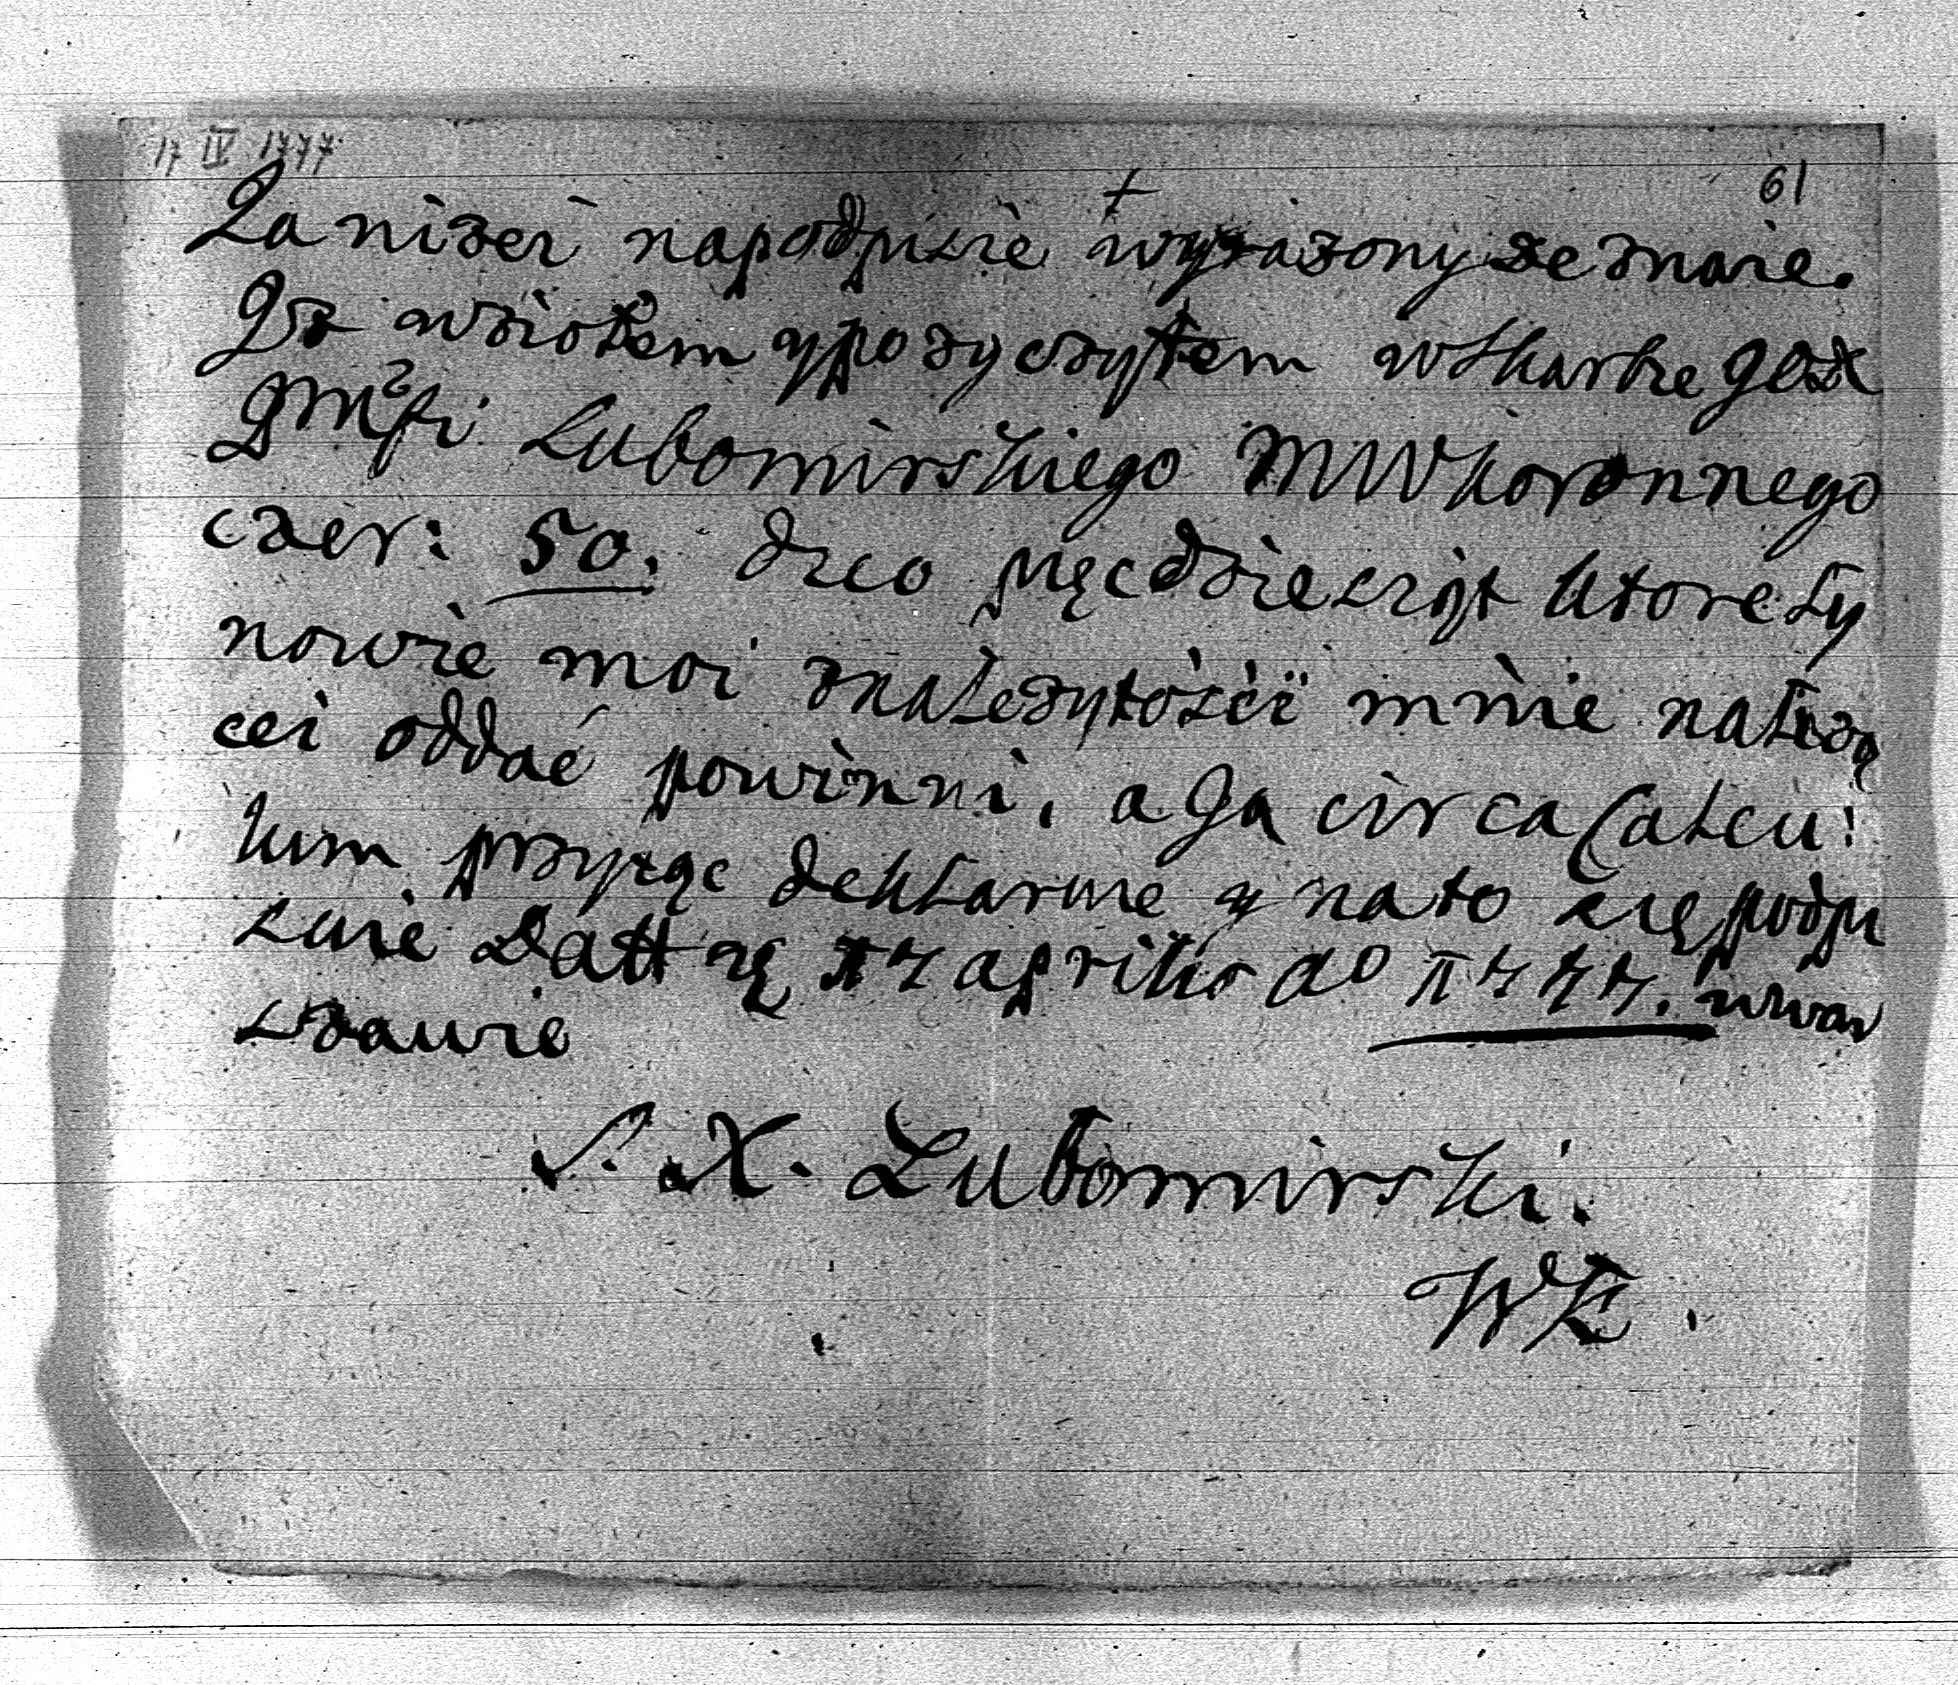 17 IV 1777
61
+
Ia nizei napodpisie wyrazony zeznaie.
Isz wziołem ypozyczyłem wskarbie
Lubomirskiego MWkoronnego
czer: 50. dico pięcdziesiąt ktore Sy
nowie moi znalezytoscii mnie należą
cei oddać powinni, a Ja circa Calcu:
lum przyiąc deklaruie y nato się podpi
suie Datt 17 aprilis do 1777. wwar
szawie
S. X. Lubomirski.
WK.